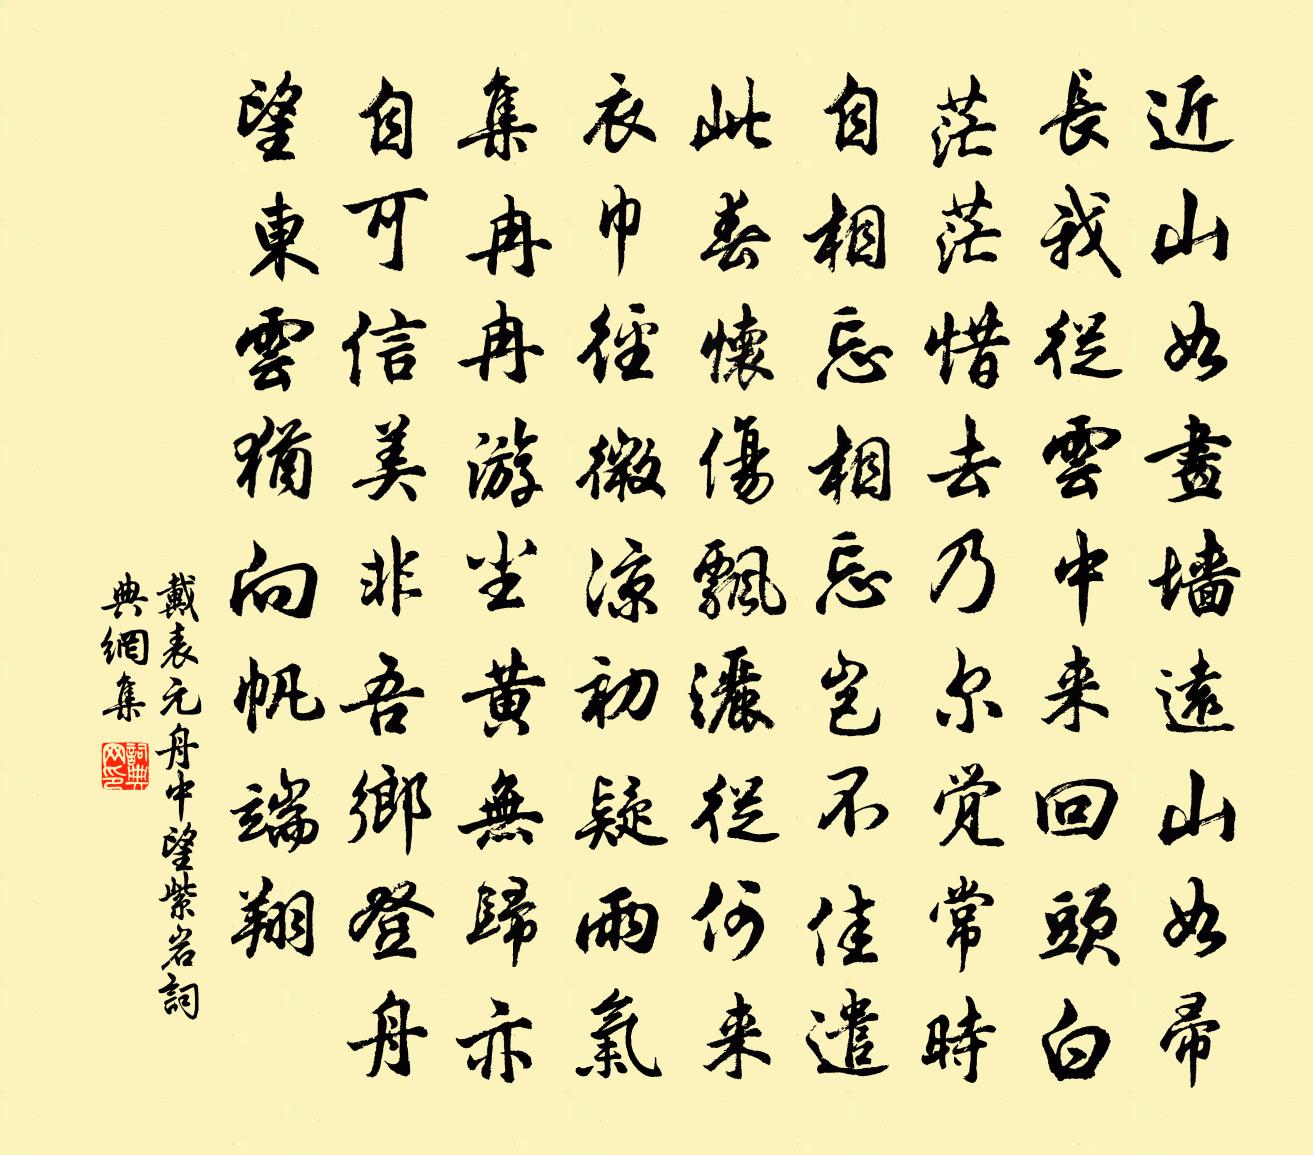 近山如畫墻遠山如帚
長我從雲中来回頭白
茫茫惜去乃尔觉常時
自相忘相忘豈不佳遣
此春懷傷飄灑從何来
衣巾徑微涼初疑雨氣
集冉冉游尘黄無歸亦
自可信美非吾鄉登舟
望東雲猶向帆端翔
戴表元舟中望紫岩詞
典網集
詞典网印